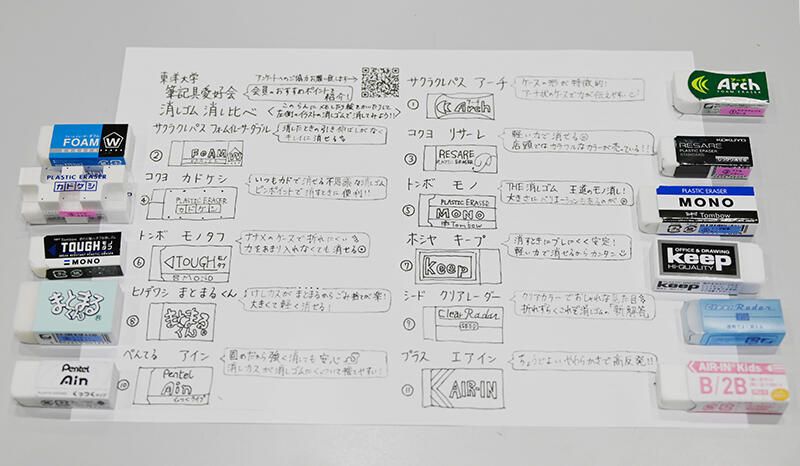 東洋大学
筆記具愛好会
消しゴム 消し比べ
アンケートへのご協力お願い致します→
会員のおすすめポイントも紹介!
このらんに
左側のイラストの消しゴムで消してみよう!!
サクラクレパス アーチ
ケースの形が特徴的!
アーチ状のケースで力が伝えやすい
① Arch
サクラクレパス フォームイレーザーダブル
消したときの引き
キレイに消せる
② FOAM W
コクヨ リサーレ
軽い力で消せる
店頭ではカラフルなカラーが売っている!!
③ RESARE
コクヨ カドケシ
いつもカドで消せる不思議な消しゴム
ピンポイントで消すときに便利!!
④ PLASTIC ERASER
カドケシ
トンボ モノ
THE 消しゴム 王道のモノ消し!
大きさにバリエーションもあるのが
⑤ PLASTIC ERASER
MONO
Tombow
トンボ モノタフ
ナナメのケースで折れにくい
力をあまり入れなくても消せる
⑥ TOUGH
MONO
ホシヤ キープ
消すときにブレにくく安定!
軽い力で消せるからカンタン
⑦ Keep
ヒノデワシ まとまるくん
けしカスがまとまるからごみ捨てが楽!
大きくて軽く消せる!
⑧ まとまるくん
シード クリアレーダー
クリアカラーでおしゃれな見た目
折れずらくこれぞ消しゴムの「新解答」
⑨ Clear Radar
ぺんてる アイン
固めだから強く消しても安心
消しカスが消しゴムにくっついて捨てやすい!
⑩ Pentel
Ain
くっつくタイプ
プラス エアイン
ちょうどよいやわらかさで高反発!!
⑪ AIR-IN
FOAM
W
PLASTIC ERASER
カドケシ
TOUGH
MONO
まとまるくん
Pentel
Ain
くっつくタイプ
アーチ
Arch
FOAM ERASER
KOKUYO
RESARE
PLASTIC ERASER
STANDARD
PLASTIC ERASER
MONO
Tombow
OFFICE & DRAWING
keep
HI-QUALITY
keep
Clear Radar
AIR-IN Kids
B/2B